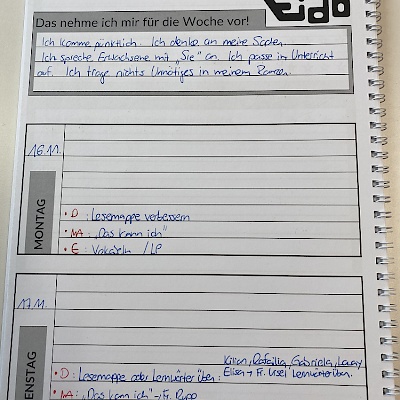 Eido
Das nehme ich mir für die Woche vor!
Ich komme pünktlich. Ich denke an meine Sachen.
Ich spreche Erwachsene mit „Sie" an. Ich passe im Unterricht
auf. Ich trage nichts Unnötiges in meinem Ranzen.
16.11.
MONTAG
• D: Lesemappe verbessern
• MA: „Das kann ich"
• E: Vokabeln / LP
17.11.
ENSTAG
Kilian, Gabriela,
• D: Lesemappe oder Lernwörter üben: Elisa → Fr. Lernwörter üben.
• MA: „Das kann ich" → Fr.